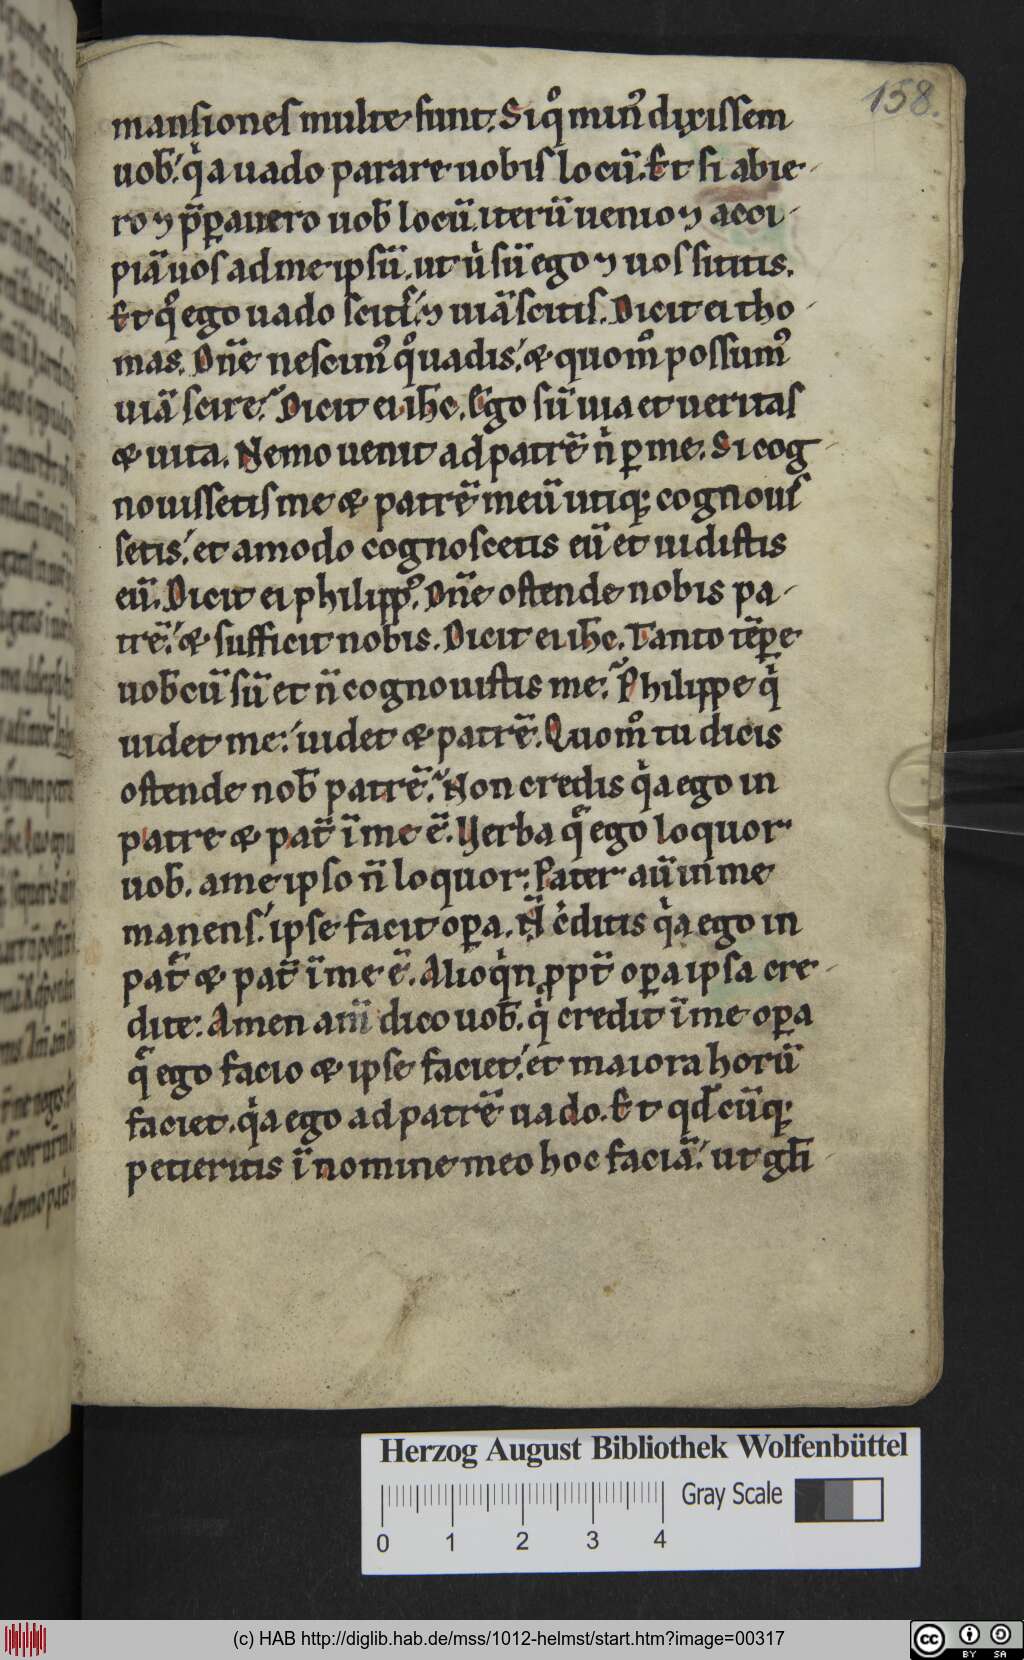 158.
mansiones multe sunt. Si qͦ minꝰ dixissem
uob̅. qͥa uado parare uobis locu̅. Et si abie-
ro ⁊ p̅ꝑauero uob̅ locu̅. iteru̅ uenio ⁊ acci-
pia̅ uos ad me ipsu̅. ut uͥ su̅ ego ⁊ uos sitis.
Et qͦ ego uado scitis. ⁊ uia̅ scitis. Dicit ei tho-
mas. Dn̅e nescimꝰ qͦ uadis. & quomͦ possumꝰ
uia̅ scire? Dicit ei ih̅c. Ego su̅ uia et ueritas
& uita. Nemo uenit ad patre̅ nͥ ꝑ me. Si cog-
nouissetis me & patre̅ meu̅ utiqꝫ cognouis
setis. et amodo cognoscetis eu̅ et uidistis
eu̅. Dicit ei philippꝰ. Dn̅e ostende nobis pa-
tre̅. & sufficit nobis. Dicit ei ih̅c. Tanto te̅ꝑe
uob̅cu̅ su̅ et n̅ cognouistis me? Philippe qͥ
uidet me. uidet & patre̅. Quomͦ tu dicis
ostende nob̅ patre̅? Non credis qͥa ego in
patre & pat̅ i̅ me e̅. Verba q̅ ego loquor
uob̅. a me ipso n̅ loquor. Pater au̅ in me
manens. ipse facit oꝑa. N̅ cͥditis qͥa ego in
pat̅ & pat̅ i̅ me e̅. Alioqͥn ꝓpt̅ oꝑa ipsa cre-
dite. Amen am̅ dico uob̅. qͥ credit i̅ me oꝑa
q̅ ego facio & ipse faciet. et maiora horu̅
faciet. qͥa ego ad patre̅ uado. Et qd̅cu̅qꝫ
petieritis i̅ nomine meo hoc facia̅. ut gl̅i-
Herzog August Bibliothek Wolfenbüttel
Gray Scale
0 1 2 3 4
(c) HAB http://diglib.hab.de/mss/1012-helmst/start.htm?image=00317
cc BY SA